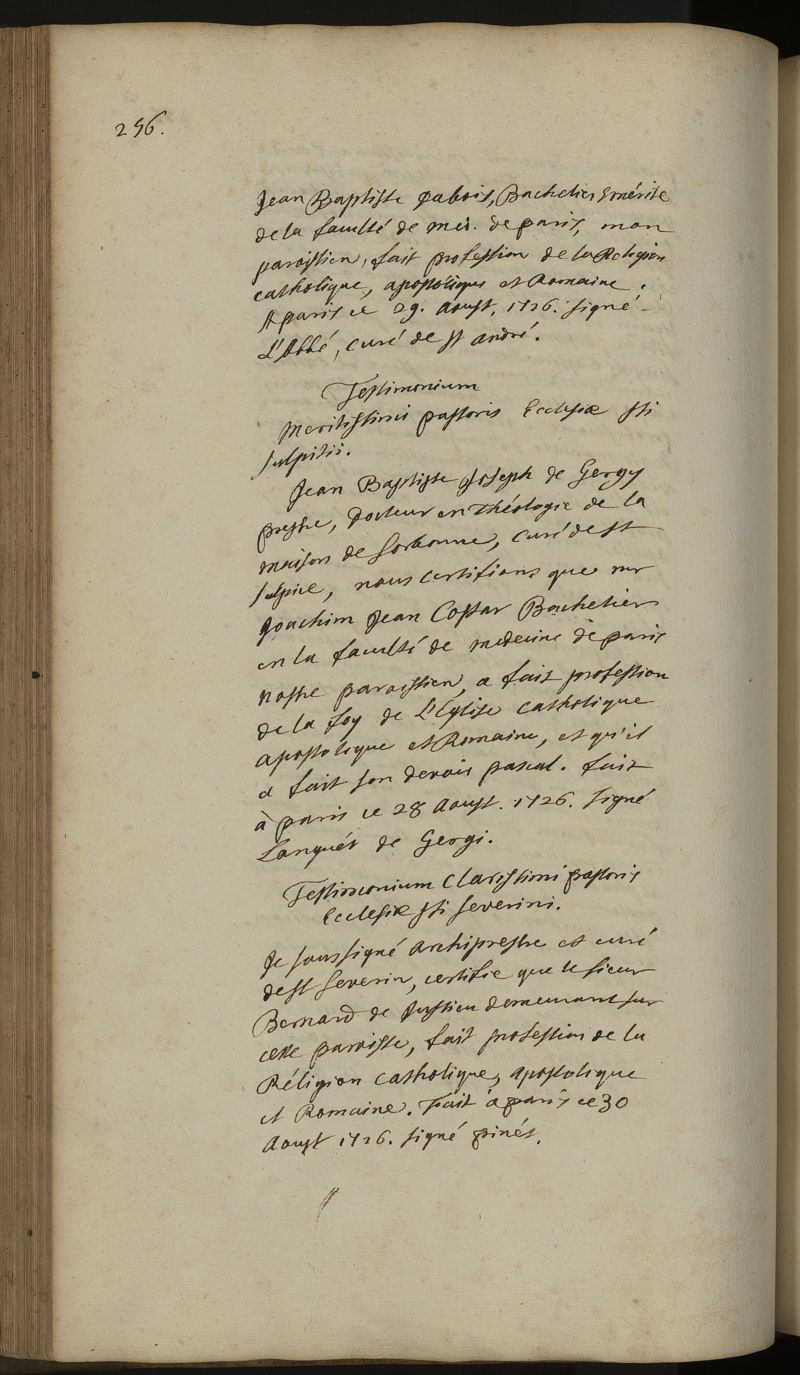 256.
Jean Baptiste Dubois, Bachelier Emérite
de la faculté de med. de paris, mon
paroissien, fait profession de la Religion
catholique, apostolique et Romaine.
A paris ce 29. Aoust, 1726. signé
L'Abbé, curé de st andré.
Testimonium
Meritissimi pastoris Ecclesiæ sti
sulpitii.
Jean Baptiste Joseph de Gergy
prestre, Docteur en Théologie de la
maison de Sorbonne, curé de st
sulpice, nous certifions que mr
Joachim Jean Costar Bachelier
en la faculté de medecine de paris
nostre paroissien, a fait profession
de la foy de L'Eglise catholique
apostolique et Romaine, et qu'il
a fait son devoir pascal. fait
à paris ce 28 Aoust. 1726. signé
Languet de Gergi.
Testimonium Clarissimi pastoris
Ecclesiæ sti severini.
Je soussigné Archiprestre et curé
de st severin, certifie que le sieur
Bernard de Jussieu demeurant sur
cette paroisse, fait profession de la
Réligion catholique, apostolique
et Romaine. Fait à paris ce 30
Aoust 1726. signé pinet.